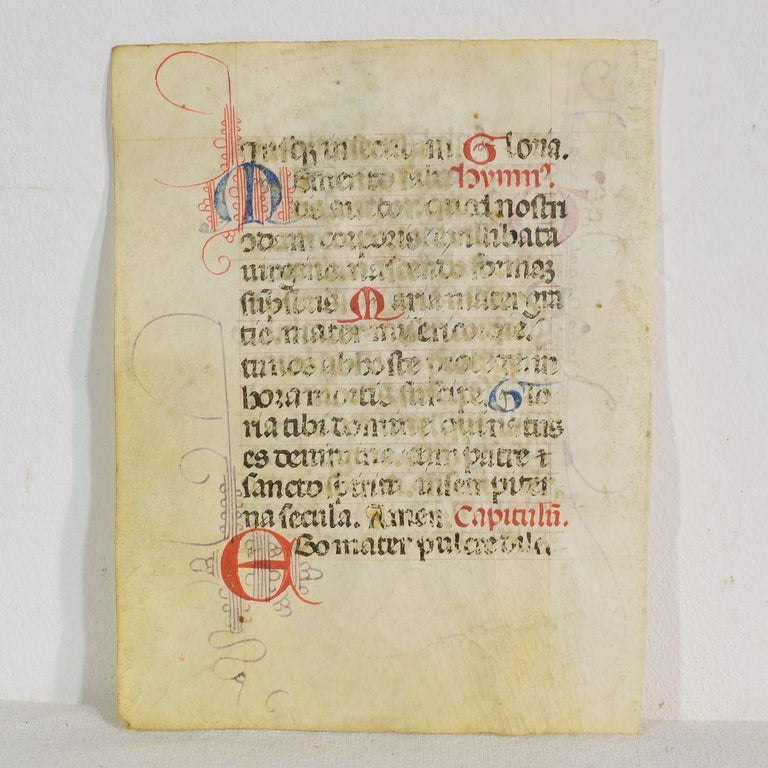 Gloria.
Memento salu Hymn⁹.
tis auctor quod nostri
quondam corporis ex illibata
virgine. nascendo formaz
sūpseris Maria mater gra
tie. mater misericordie.
tu nos ab hoste protege. in
hora mortis suscipe. Glo
ria tibi domine qui natus
es de virgine. cum patre ⁊
sancto spiritu. in sempiter
na secula. Amen. Capitulū.
Ego mater pulcre dile